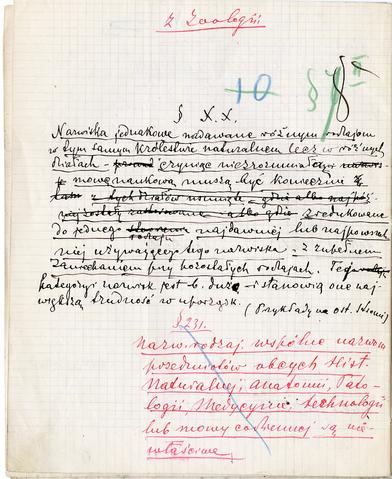 z Zoologii
10
§ X.X.
Nazwiska jednakowe nadawane różnym rodzajom
w tym samym królestwie naturalnem lecz w różnych
działach czyniąc niezrozumiałą
mowę naukową muszą być koniecznie
gdzie albo
albo gdzie zredukowane
do jednego najdawniej lub najpowszech
niej używającego tego nazwiska z zupełnem
zaniechaniem przy pozostałych rodzajach.
kategoryi nazwisk jest b. dużo i stanowią one naj
większą trudność w
(Przykłady na ost. stronie)
§ 231.
Nazw. rodzaj. wspólne nazwom
przedmiotów obcych Hist.
Naturalnej, anatomii, Pato-
logii, Medycynie, technologii
lub mowy codziennej są nie-
właściwe